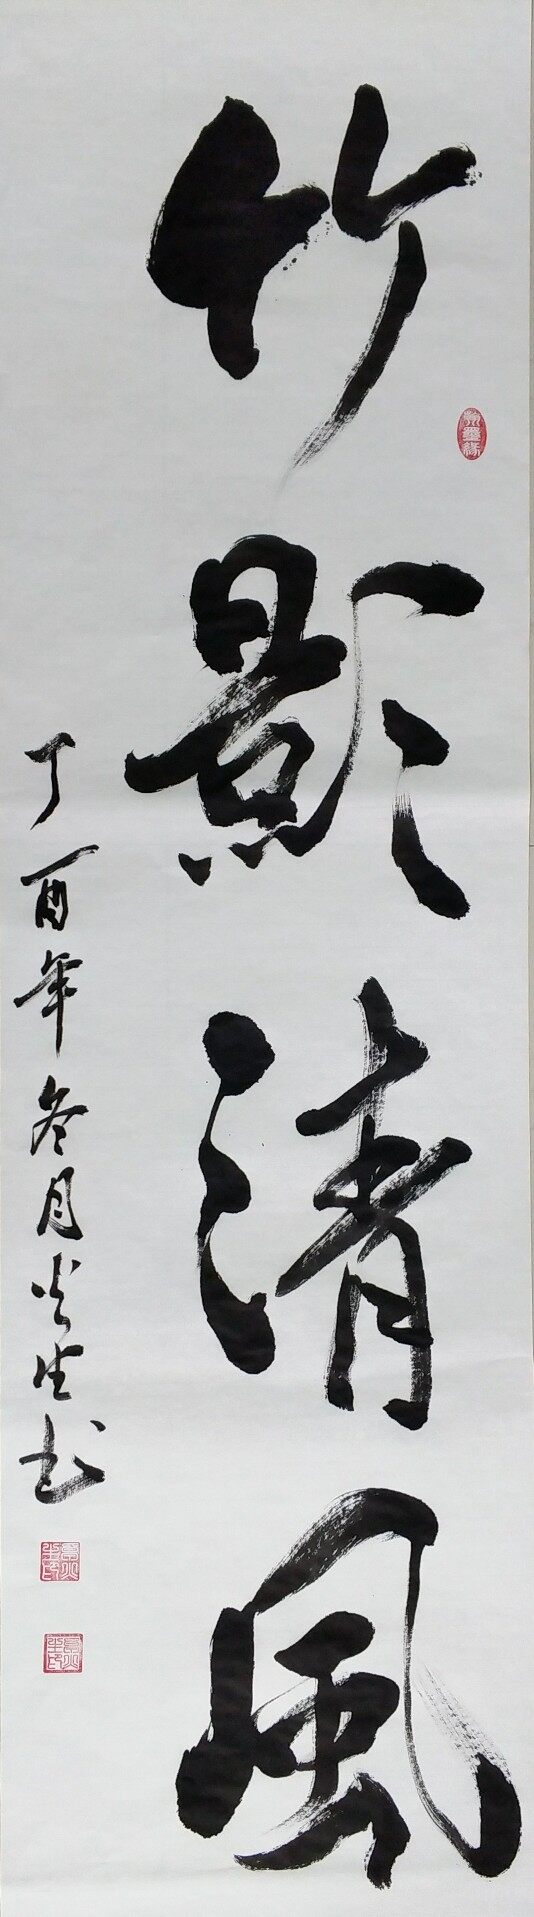 竹影清風
丁酉年冬月火生书